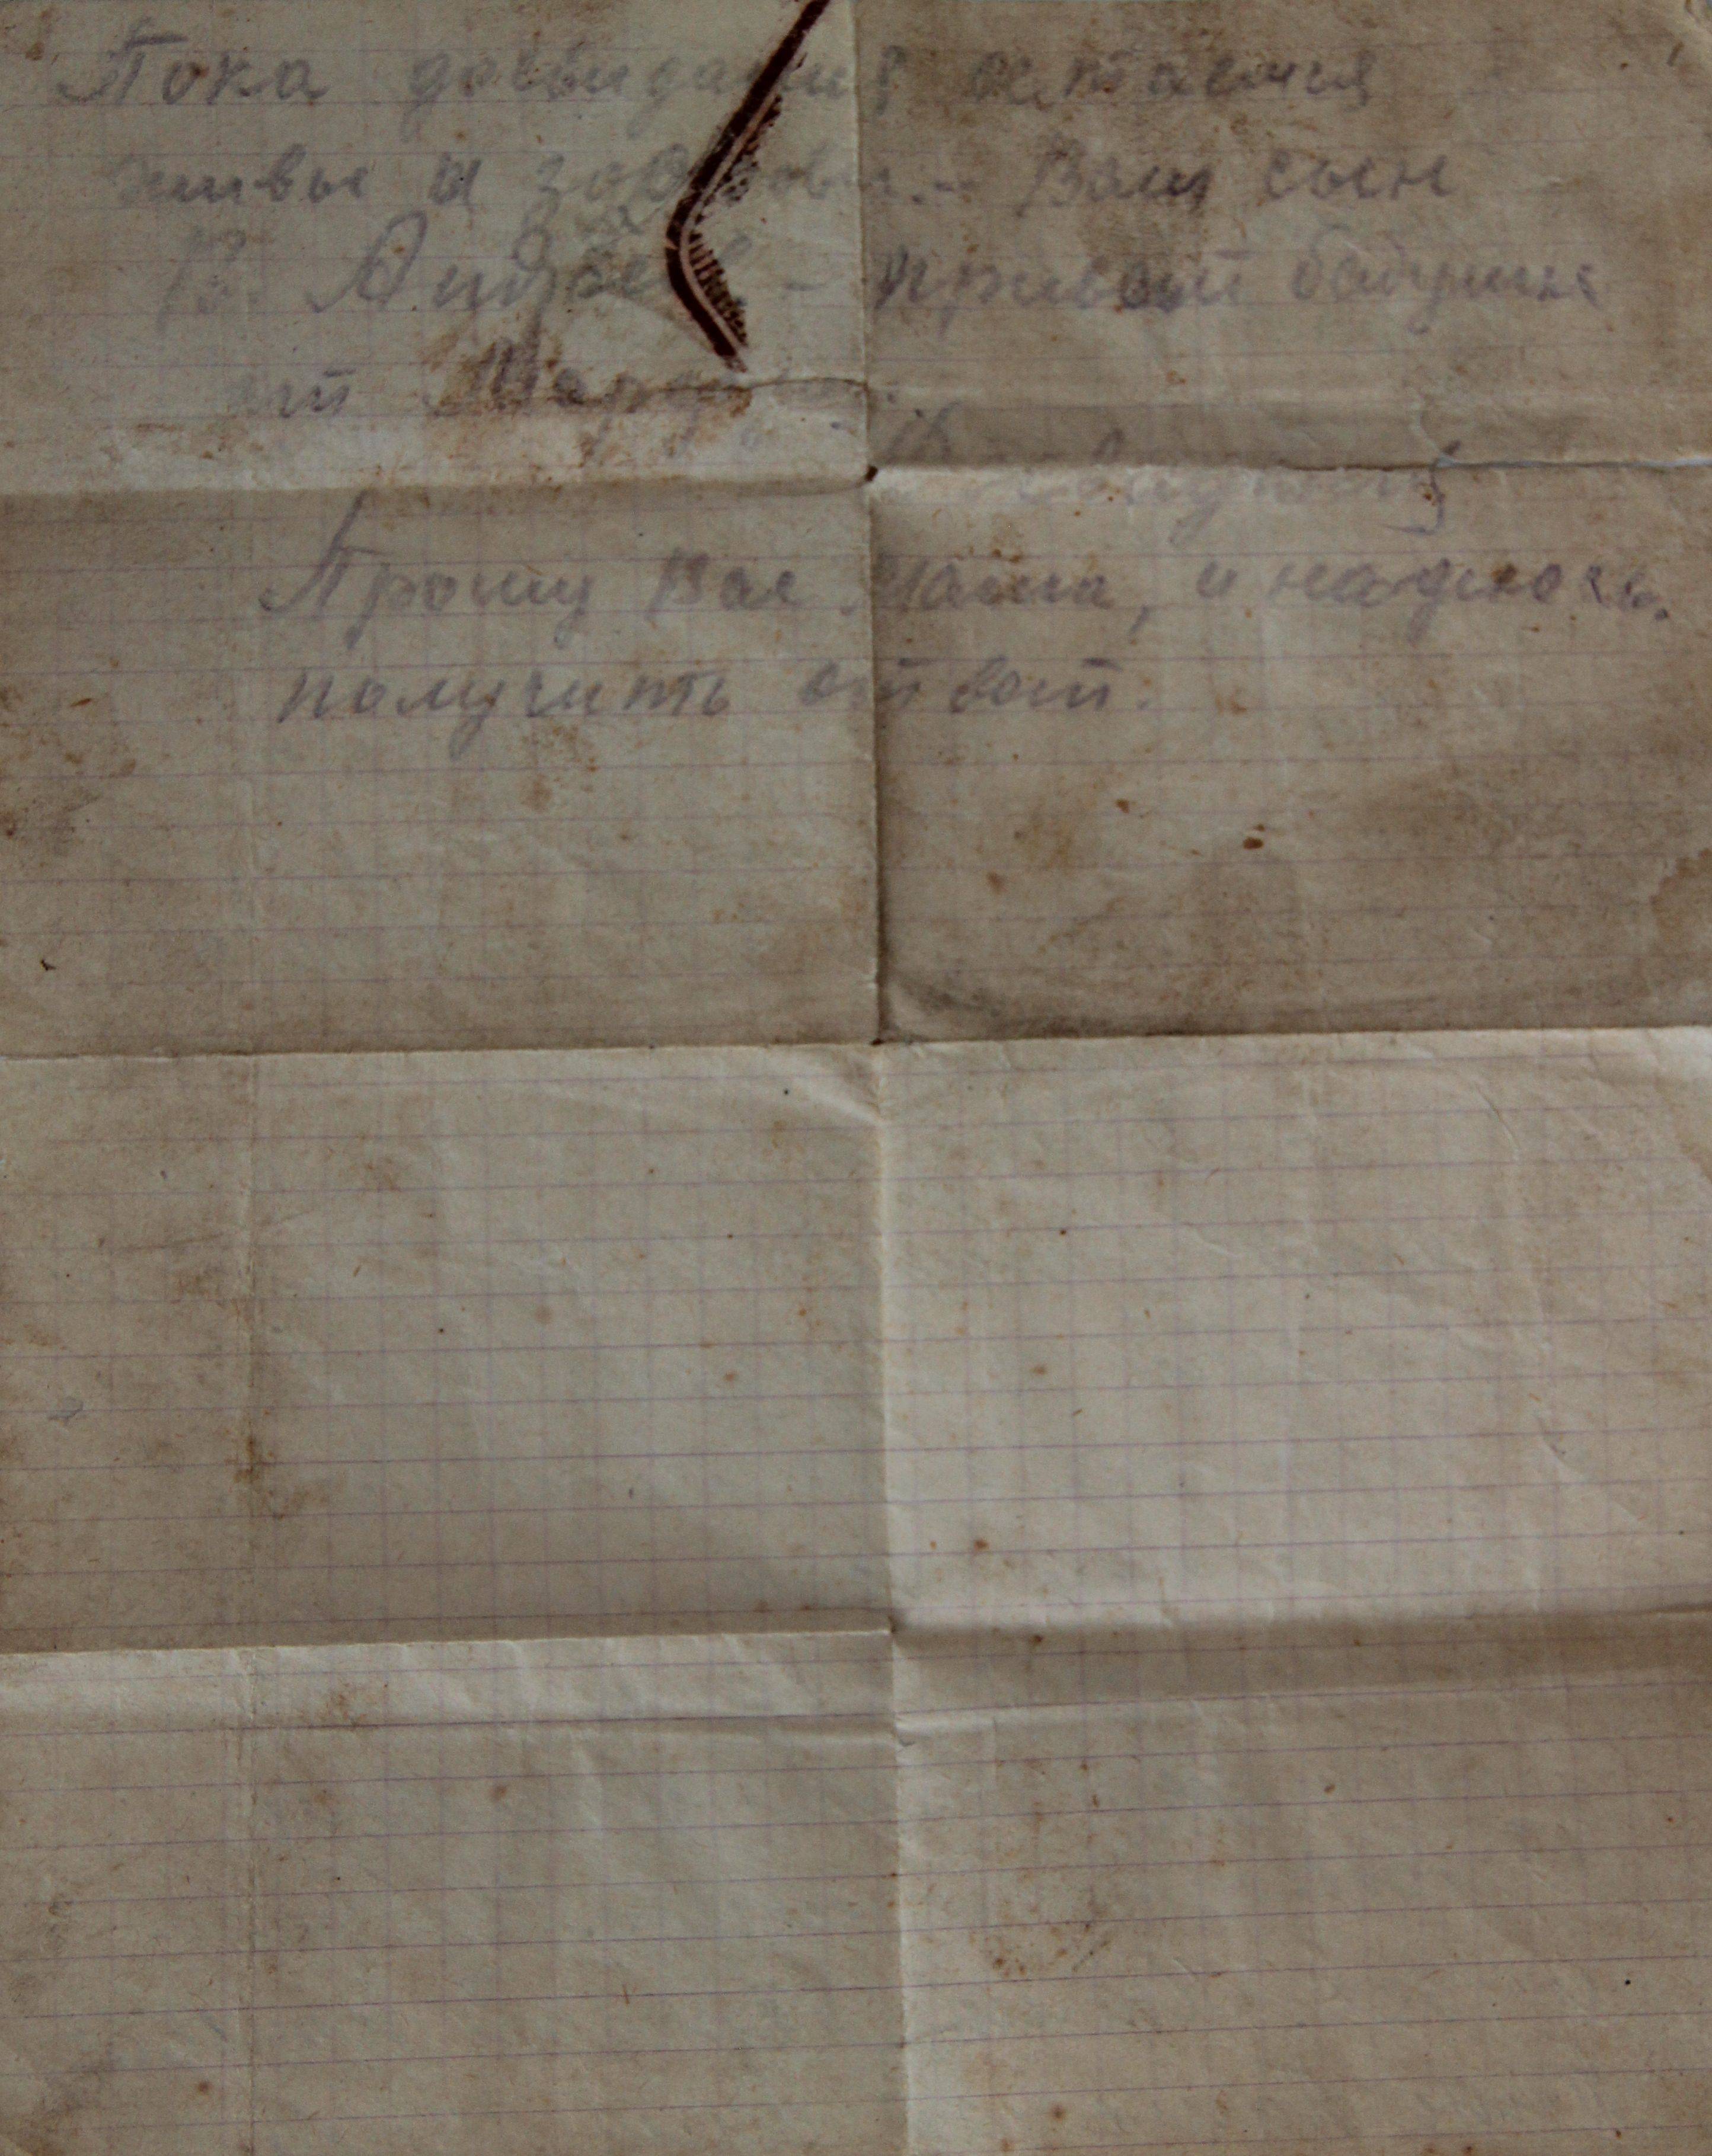 Пока досвидания остаемся
живы и здоровы. - Ваш сын
В. Андреев - привет бабушке
от
Прошу Вас Мама, и надеюсь
получить ответ.